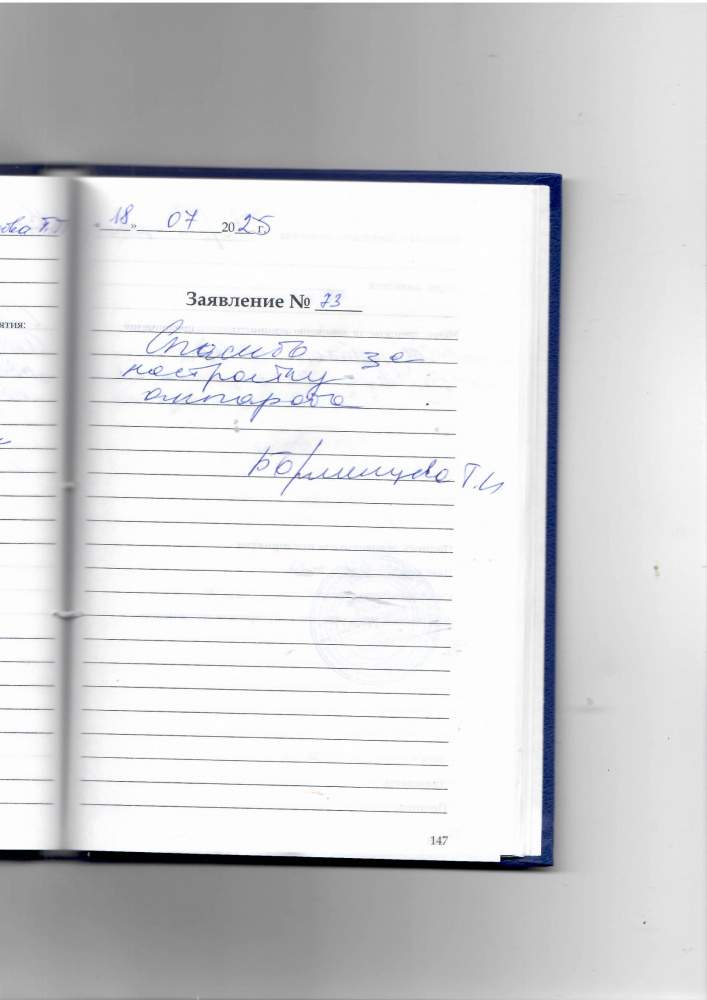 «18» 07 2025 г.
Заявление № 73
ятия:
Спасибо за
настройку
аппарата
Т.И
147